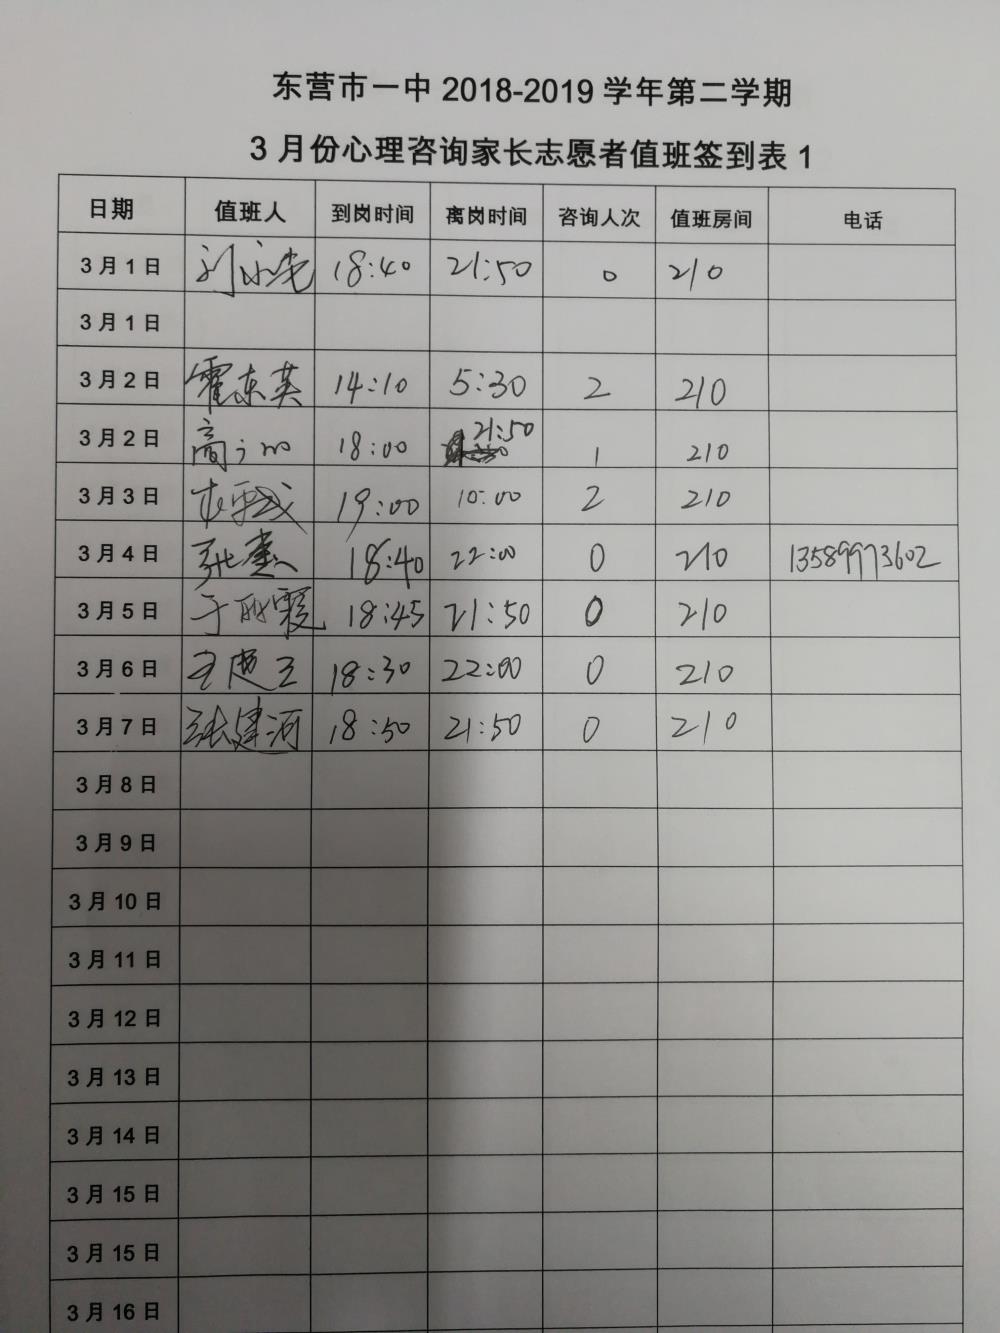 东营市一中 2018-2019 学年第二学期
3 月份心理咨询家长志愿者值班签到表 1
日期 值班人 到岗时间 离岗时间 咨询人次 值班房间 电话
3 月 1 日 18:40 21:50 0 210
3 月 1 日
3 月 2 日 霍东英 14:10 5:30 2 210
3 月 2 日 18:00 21:50 1 210
3 月 3 日 19:00 10:00 2 210
3 月 4 日 18:40 22:00 0 210 13589973602
3 月 5 日 18:45 21:50 0 210
3 月 6 日 18:30 22:00 0 210
3 月 7 日 张建河 18:50 21:50 0 210
3 月 8 日
3 月 9 日
3 月 10 日
3 月 11 日
3 月 12 日
3 月 13 日
3 月 14 日
3 月 15 日
3 月 15 日
3 月 16 日